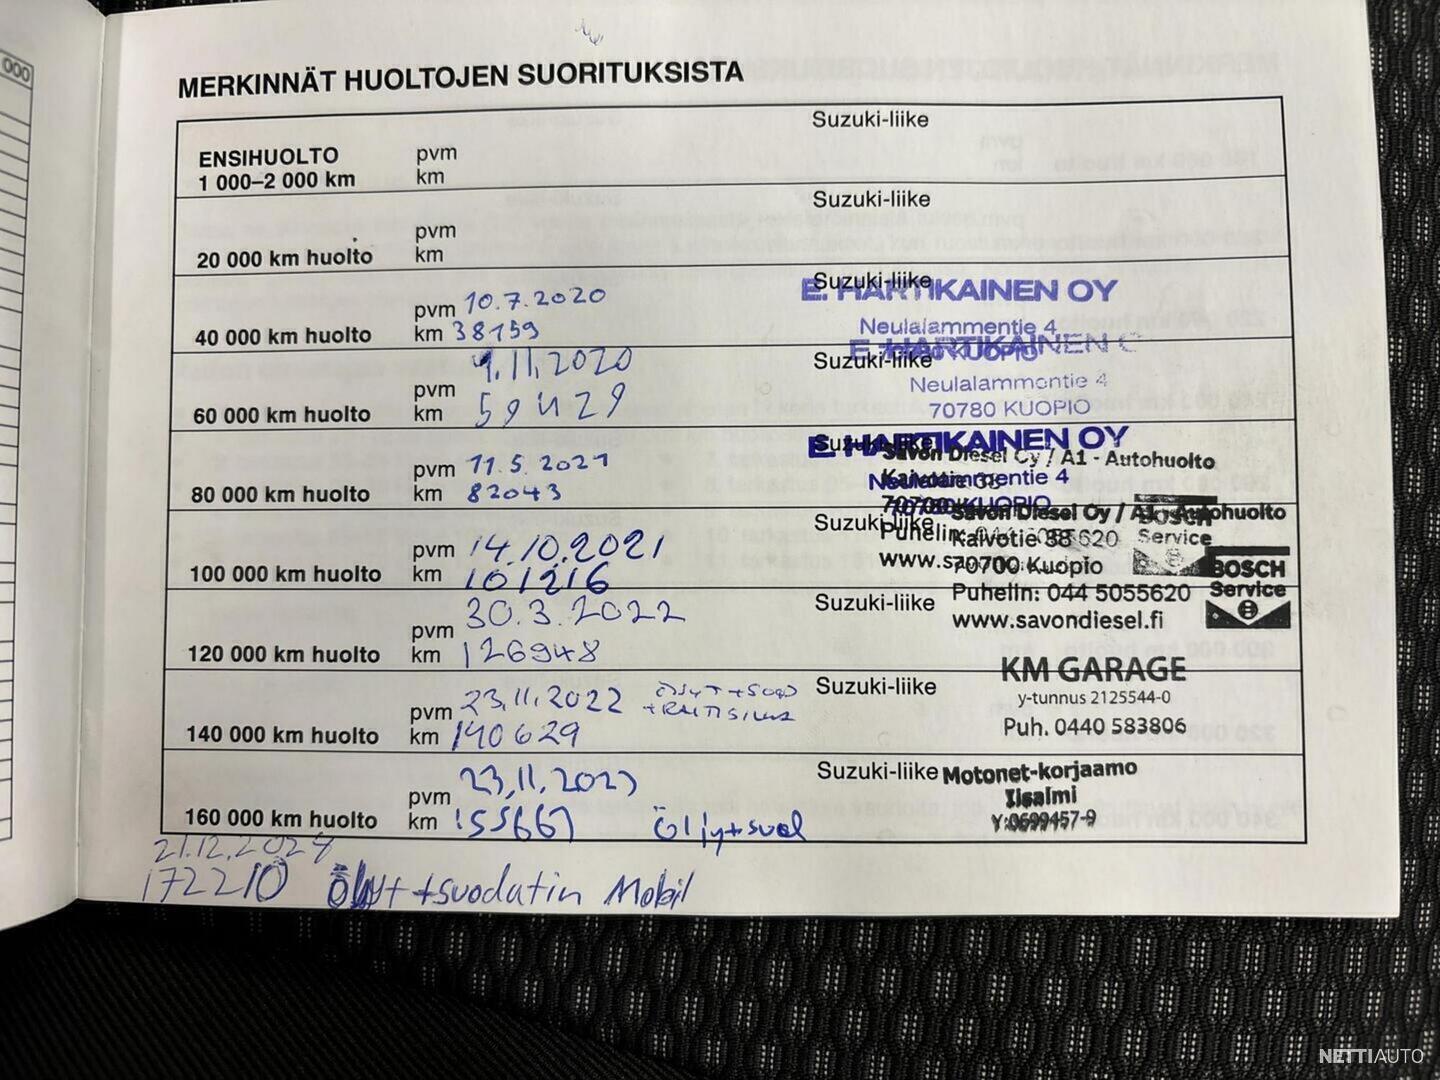 000
MERKINNÄT HUOLTOJEN SUORITUKSISTA
Suzuki-liike
ENSIHUOLTO pvm
1 000–2 000 km km
Suzuki-liike
pvm
20 000 km huolto km
Suzuki-liike
E. HARTIKAINEN OY
pvm 10.7.2020
Neulalammentie 4
40 000 km huolto km 38159
70780 KUOPIO
Suzuki-liike
E. HARTIKAINEN
pvm 9.11.2020
Neulalammentie 4
60 000 km huolto km 59429
70780 KUOPIO
Suzuki-liike
E. HARTIKAINEN OY
Savon Diesel Oy / A1 - Autohuolto
pvm 11.5.2021
Neulalammentie 4
Kaivotie 38
80 000 km huolto km 82043
70780 KUOPIO
70700
Suzuki-liike
Savon Diesel Oy / A1 - Autohuolto
BOSCH
Service
Puhelin:
pvm 14.10.2021
Kaivotie 38
70700 Kuopio
BOSCH
Service
100 000 km huolto km 101216
Suzuki-liike
Puhelin: 044 5055620
www.savondiesel.fi
pvm 30.3.2022
120 000 km huolto km 126948
KM GARAGE
Suzuki-liike
y-tunnus 2125544-0
pvm 23.11.2022
Puh. 0440 583806
140 000 km huolto km 140629
Suzuki-liike
Motonet-korjaamo
Iisalmi
Y:0699457-9
pvm 23.11.2023
160 000 km huolto km 155661 Öljy+suod
21.12.2024
172210 Öljyt+suodatin Mobil
NETTIAUTO